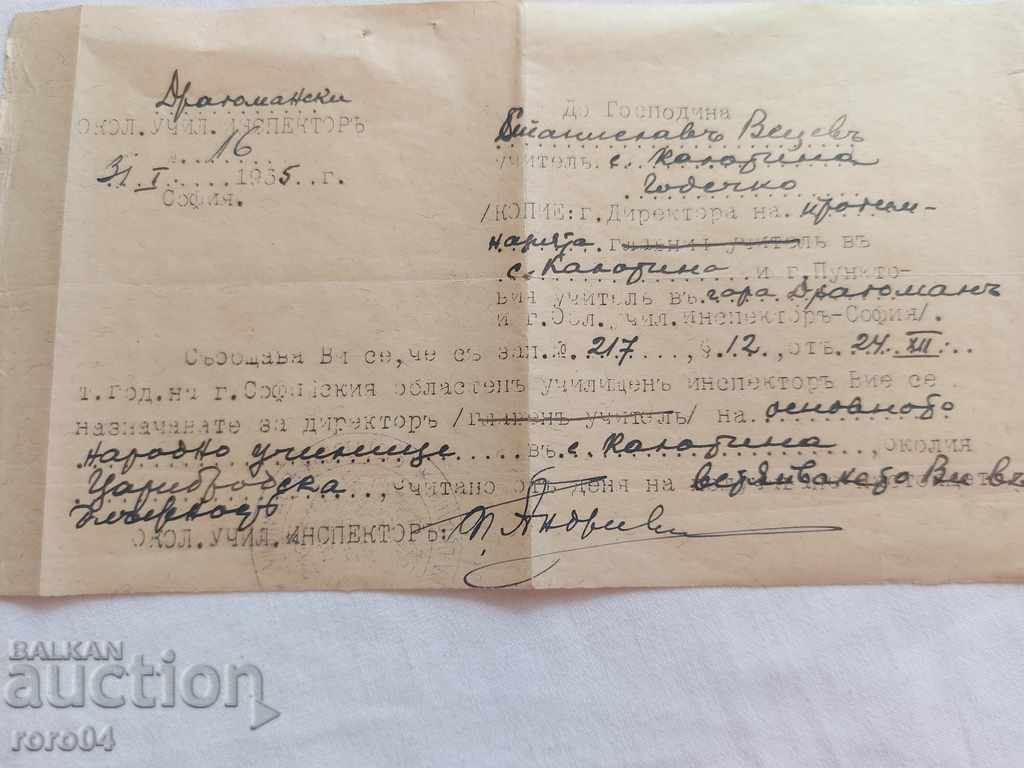 Драгомански
ОКОЛ. УЧИЛ. ИНСПЕКТОРЪ
16
31.I. 1935.. г.
София.
До Господина
Станиславъ Вецевъ
учитель с. Калотина
Годечко
/КОПИЕ: г. Директора на прогим-
назията главния учитель въ
с. Калотина и г. Пункто-
вия учитель въ гара Драгоманъ
и г. Обл. учил. инспекторъ-София/.
Съобщава Ви се, че съ зап. № 217, § 12, отъ 24.XII.
т. год. на г. Софийския областенъ училищенъ инспекторъ Вие се
назначавате за директоръ /главенъ учитель/ на основното
народно училище въ с. Калотина, околия
Царибродска, считано отъ деня на встѫпването Ви въ
длъжность
ОКОЛ. УЧИЛ. ИНСПЕКТОРЪ:
BALKAN
auction
roro04